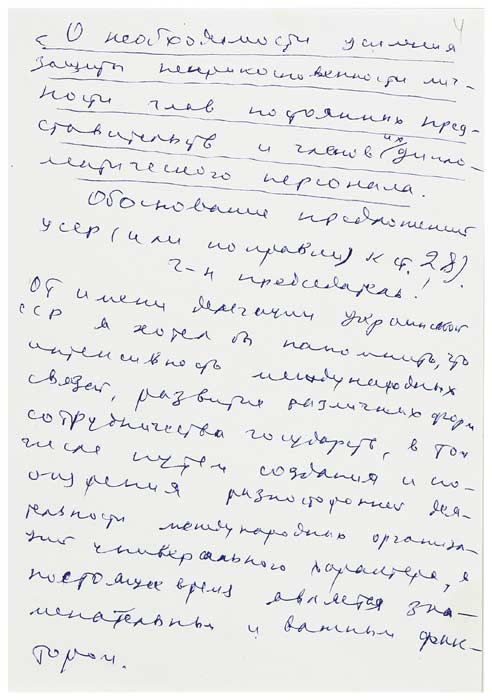 4
< О необходимости усиления
защиты неприкосновенности лич-
ности глав постоянных пред-
ставительств и членов их дипло-
матического персонала.
Обоснование предложений
УССР (или поправки) к ст. 28).
г-н председатель!
От имени делегации Украинской
ССР я хотел бы напомнить, что
интенсивность международных
связей, развитие различных форм
сотрудничества государств, в том
числе путем создания и по-
ощрения разносторонней дея-
тельности международных организа-
ций универсального характера, в
настоящее время является зна-
менательным и важным фак-
тором.